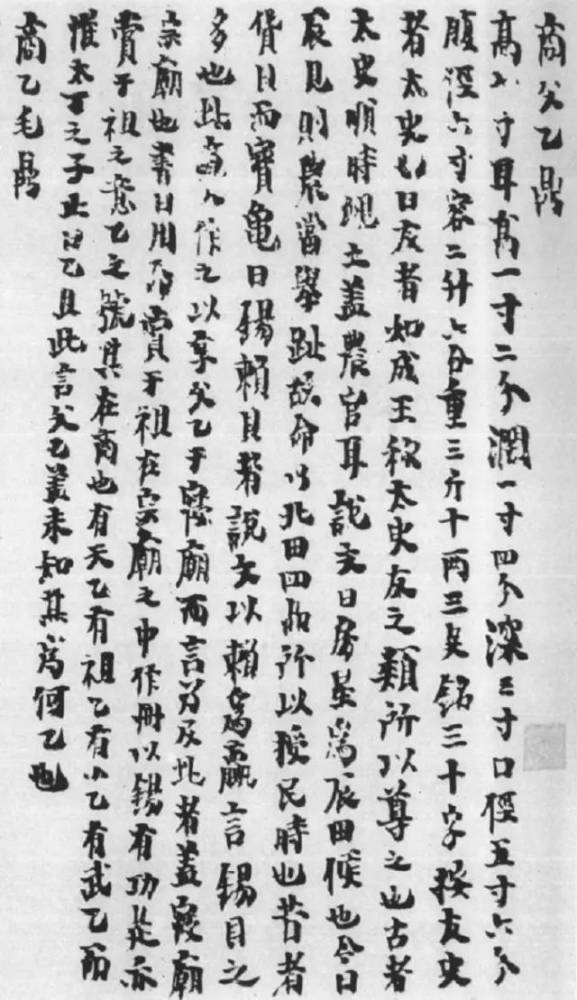 商父乙鼎
高八寸耳高一寸二分濶一寸四分深三寸口徑五寸六分
腹徑六寸容二升六合重三斤十兩三足銘三十字按友史
者太史也曰友者如成王稱太史友之類所以尊之也古者
太史順時覛土蓋農官耳說文曰房星為辰田候也今曰
辰見則農當舉趾故命以北田四品所以授民時也昔者
貨貝而寶龜曰錫賴貝者說文以賴為贏言錫貝之
多也此作之以享父乙于寢廟而言及此者蓋寢廟
宗廟也書曰用命賞于祖在宗廟之中作冊以錫有功是亦
賞于祖之意乙之號其在商也有天乙有祖乙有小乙有武乙而
惟太丁之子止曰乙且此言父乙蓋未知其為何乙也
商乙毛鼎